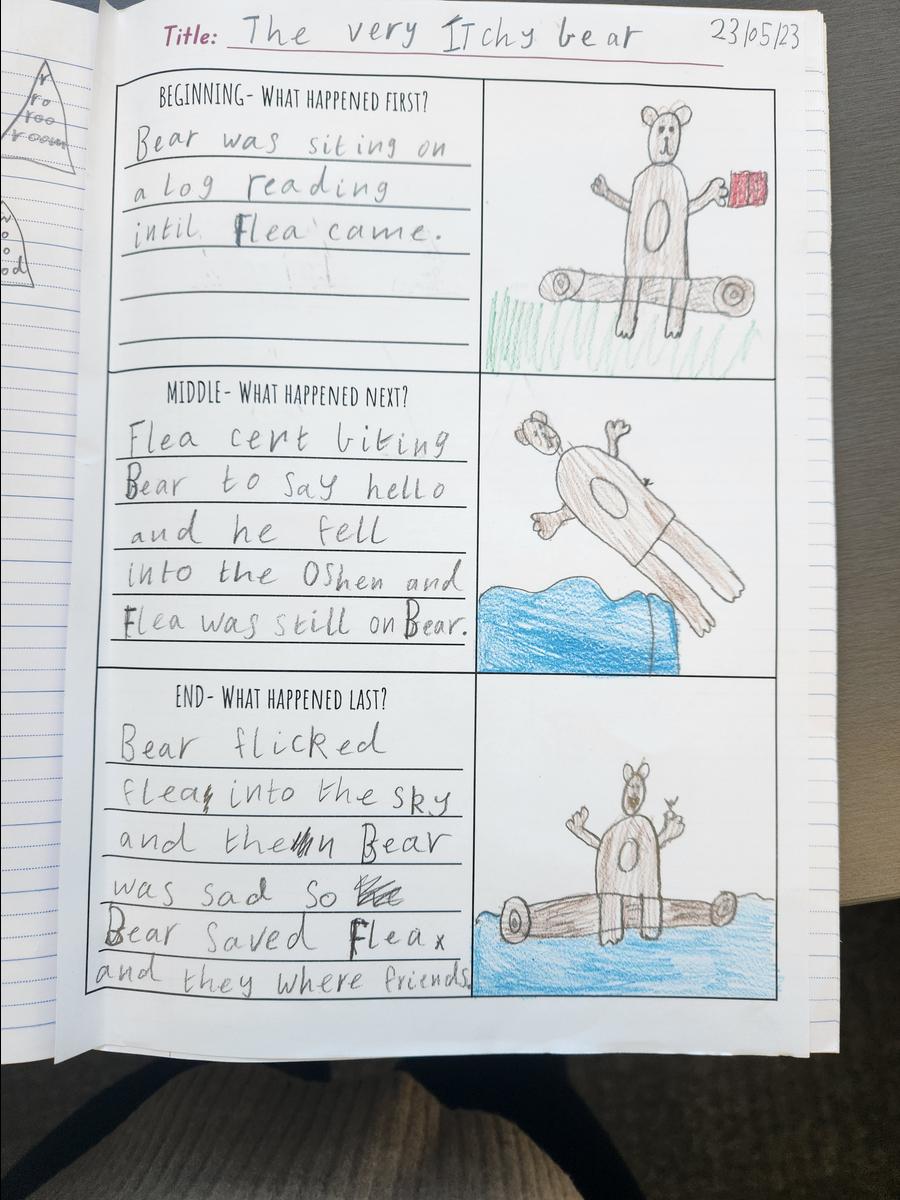 Title: The very ITchy bear
23/05/23
BEGINNING- WHAT HAPPENED FIRST?
Bear was siting on
a log reading
intil Flea came.
MIDDLE- WHAT HAPPENED NEXT?
Flea cert biting
Bear to say hello
and he fell
into the OShen and
Flea was still on Bear.
END- WHAT HAPPENED LAST?
Bear flicked
flea into the sky
and then Bear
was sad so
Bear saved Flea x
and they where friends.
r
ro
roo
room
o
o
od